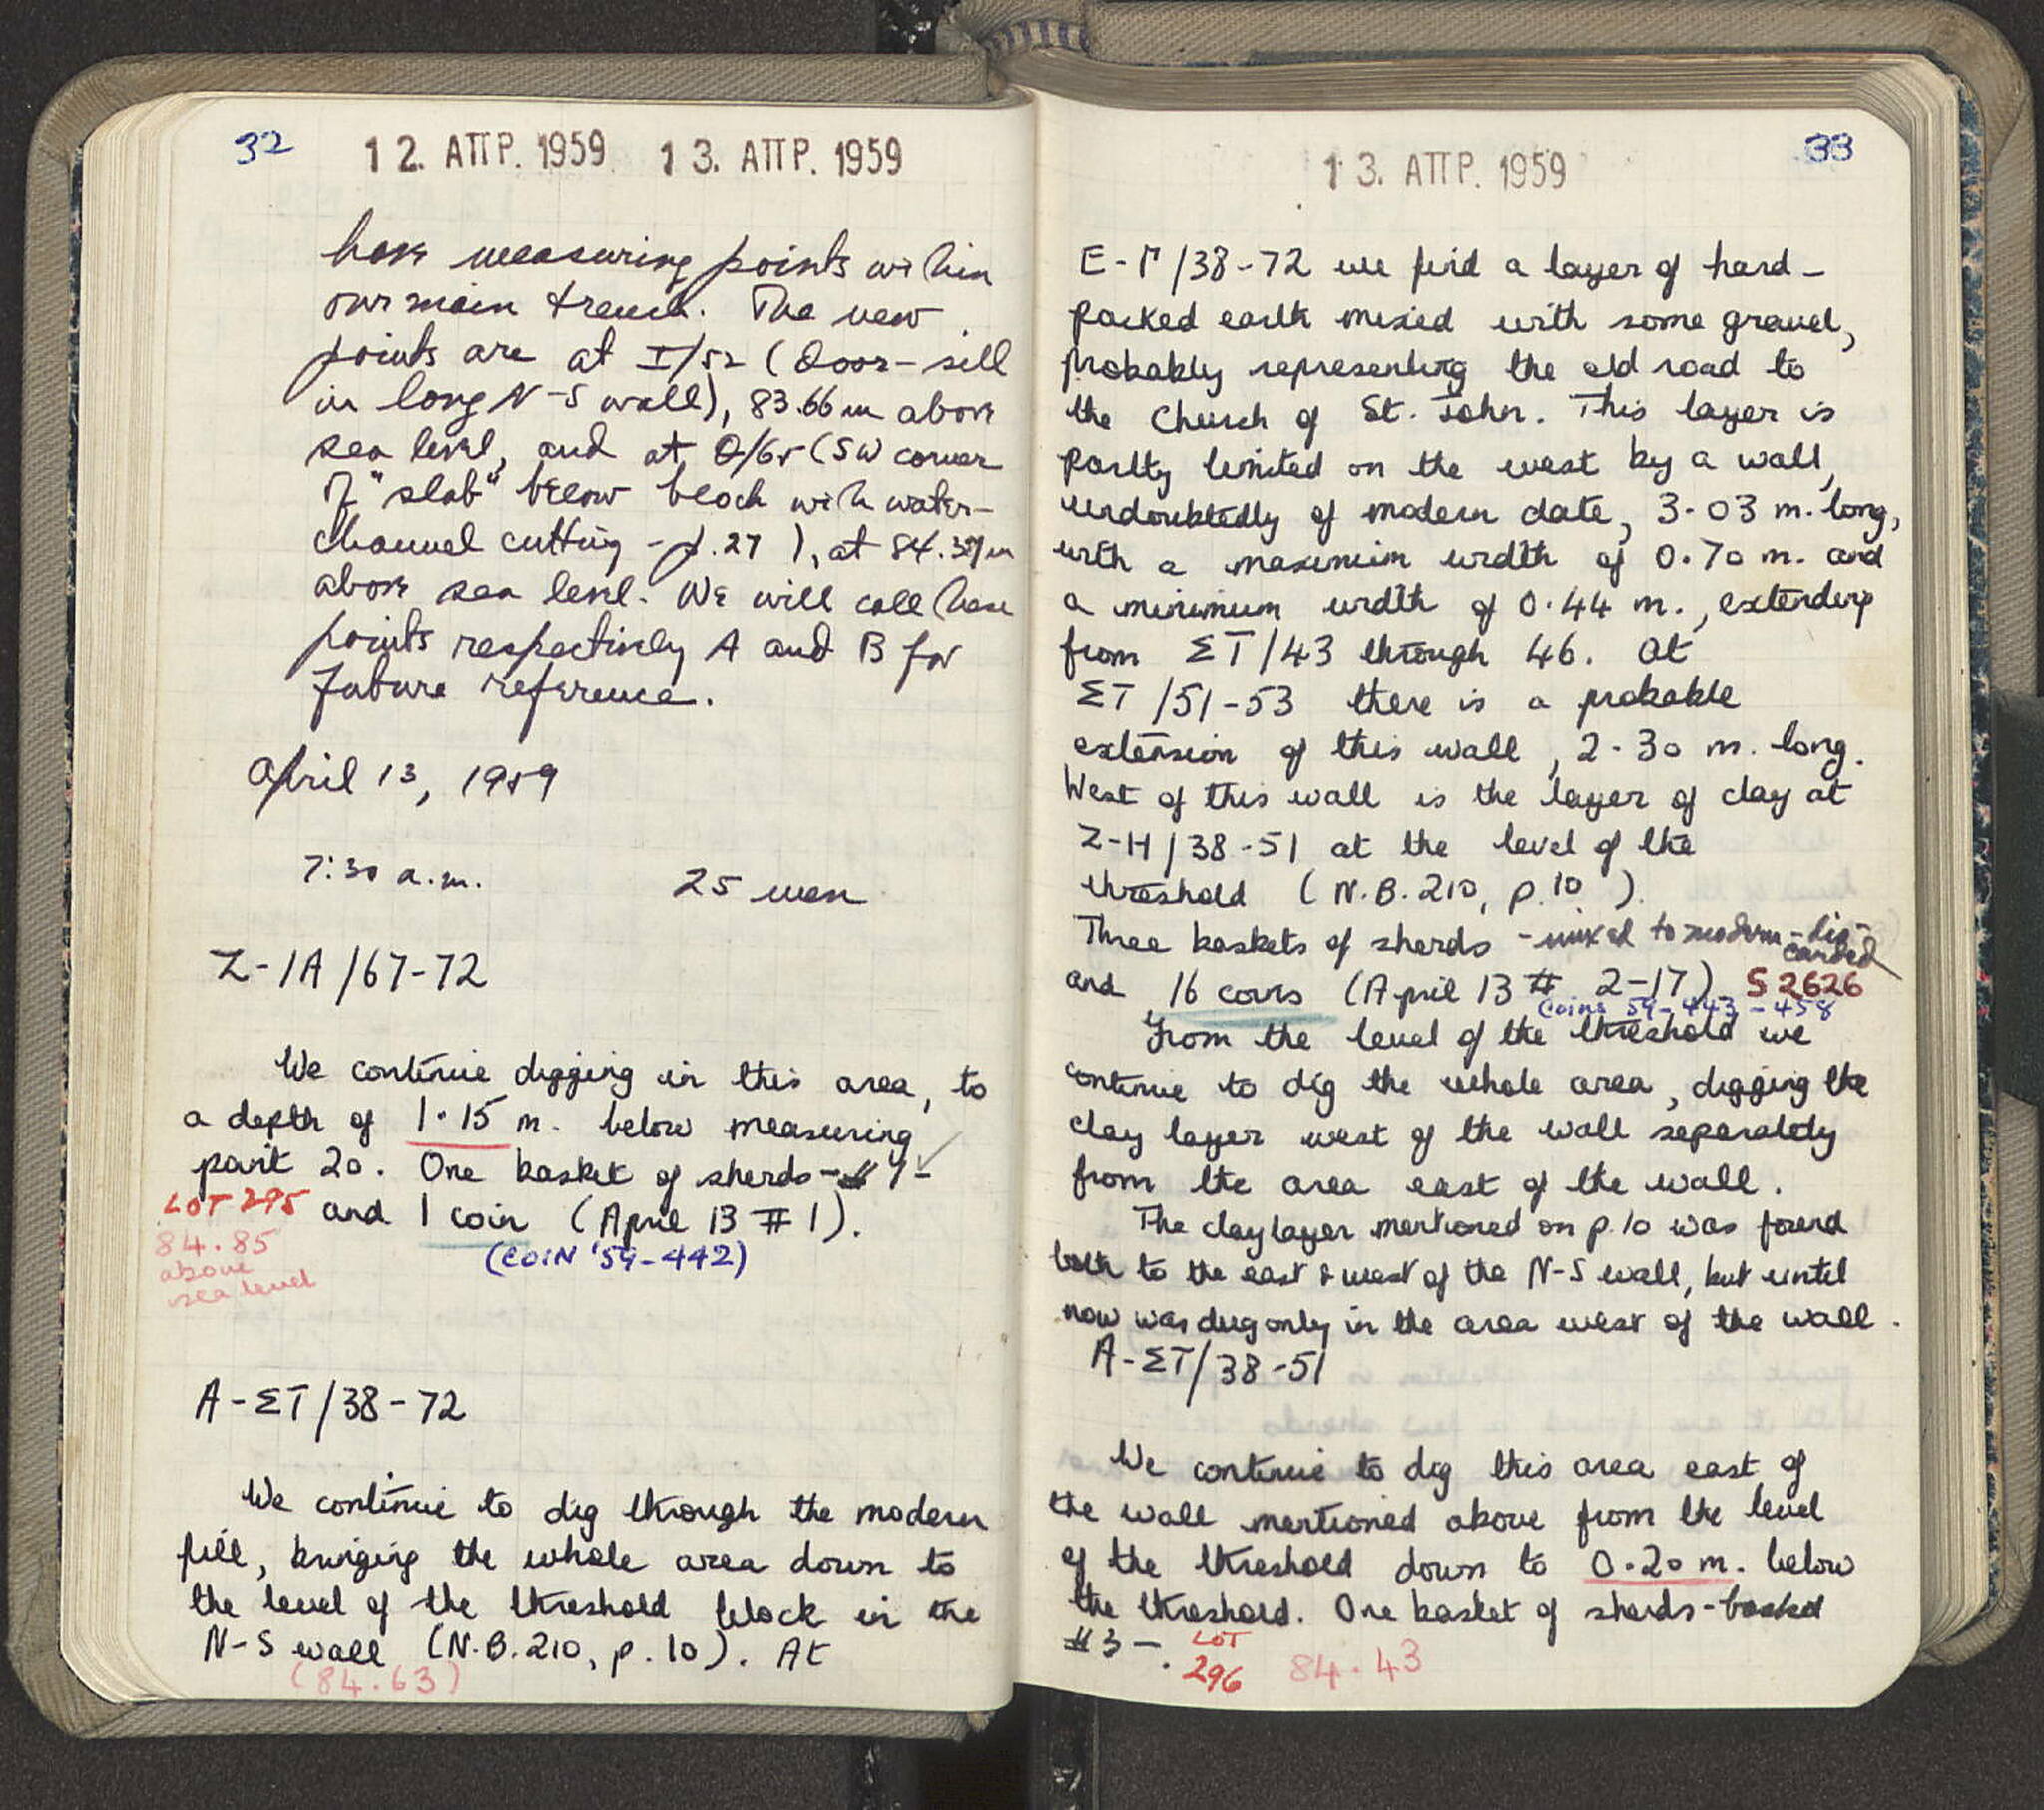 32
12. ΑΠΡ. 1959 13. ΑΠΡ. 1959
have measuring points within
our main trench. The new
points are at I/52 (Door-sill
in long N-S wall), 83.66 m above
sea level, and at Θ/65 (SW corner
of "slab" below block with water-
channel cutting - p. 27), at 84.37 m
above sea level. We will call these
points respectively A and B for
future reference.
April 13, 1959
7:30 a.m. 25 men
Z-IA/67-72
We continue digging in this area, to
a depth of 1.15 m. below measuring
point 20. One basket of sherds - # 4 -
LOT 295 and 1 coin (April 13 # 1).
84.85
above
sea level
(COIN '59-442)
A-ΣT/38-72
We continue to dig through the modern
fill, bringing the whole area down to
the level of the threshold block in the
N-S wall (N.B. 210, p. 10). At
(84.63)
33
13. ΑΠΡ. 1959
E-Γ/38-72 we find a layer of hard-
packed earth mixed with some gravel,
probably representing the old road to
the Church of St. John. This layer is
partly limited on the west by a wall,
undoubtedly of modern date, 3.03 m. long,
with a maximum width of 0.70 m. and
a minimum width of 0.44 m., extending
from ΣT/43 through 46. At
ΣT/51-53 there is a probable
extension of this wall, 2.30 m. long.
West of this wall is the layer of clay at
Z-H/38-51 at the level of the
threshold (N.B. 210, p. 10).
Three baskets of sherds - mixed to modern - dis-
carded
and 16 coins (April 13 # 2-17) S 2626
Coins 59-443-458
From the level of the threshold we
continue to dig the whole area, digging the
clay layer west of the wall separately
from the area east of the wall.
The clay layer mentioned on p. 10 was found
both to the east & west of the N-S wall, but until
now was dug only in the area west of the wall.
A-ΣT/38-51
We continue to dig this area east of
the wall mentioned above from the level
of the threshold down to 0.20 m. below
the threshold. One basket of sherds - basket
#3 -. LOT
296 84.43